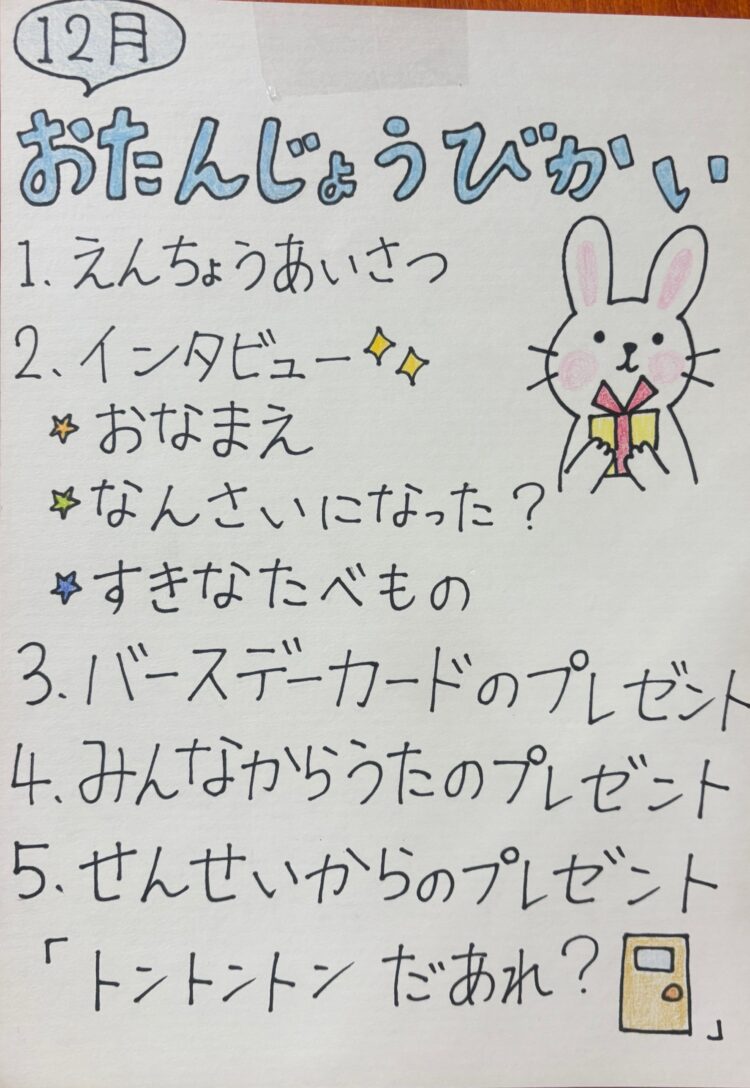 12月
おたんじょうびかい
1. えんちょうあいさつ
2. インタビュー
おなまえ
なんさいになった?
すきなたべもの
3. バースデーカードのプレゼント
4. みんなからうたのプレゼント
5. せんせいからのプレゼント
「トントントン だあれ?」